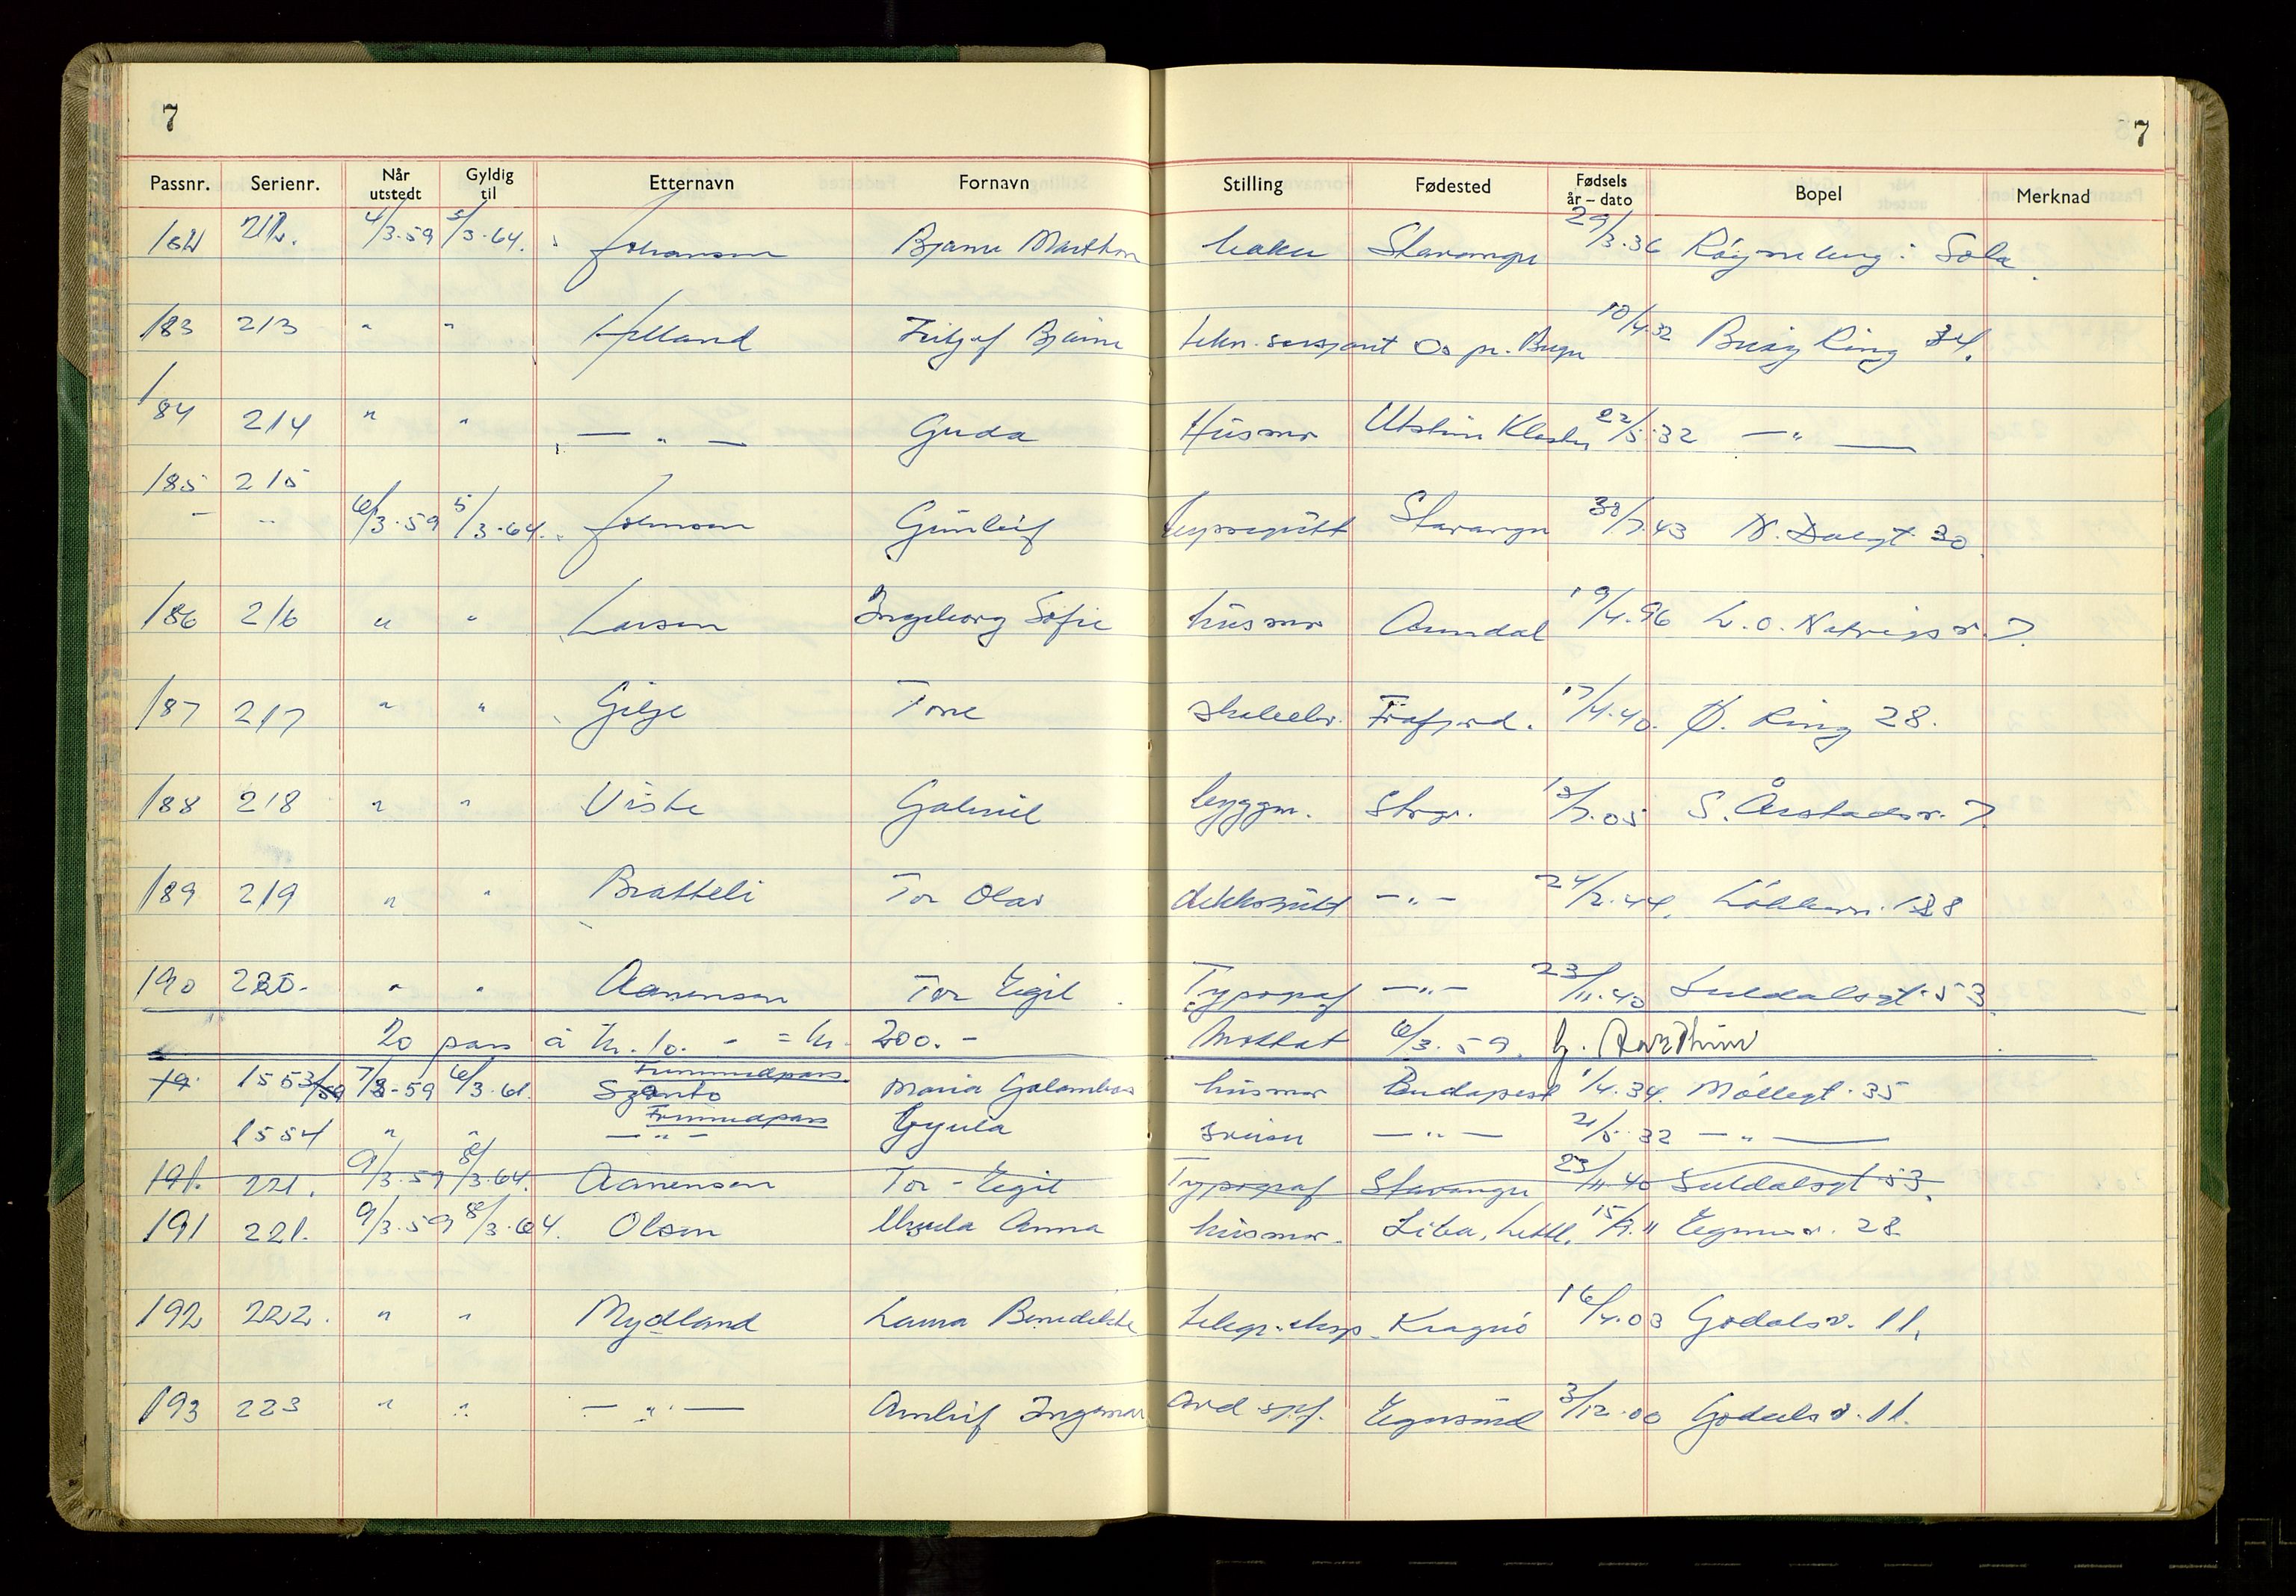 7 7
Passnr. Serienr. Når utstedt Gyldig til Etternavn Fornavn Stilling Fødested Fødsels år – dato Bopel Merknad
182 212. 4/3.59 3/3.64. Johansen Bjarne Marthon baker Stavanger 29/3.36 Røyneberg i Sola
183 213 " " Helland Fritjof Bjarne tekn. sersjant Os pr. Bergen 10/4.32 Buøy Ring 34.
184 214 " " — " — Guda Husmor Utstein Kloster 22/5.32 — " —
185 215
" " 6/3.59 5/3.64. Johnsen Gunleif byssegutt Stavanger 30/7.43 N. Dalgt. 30
186 216 " " Larsen Ingeborg Sofie husmor Arendal 19/4.96 L.O. Natvigs v. 7.
187 217 " " Gilje Tone skoleelev. Frafjord. 17/4.40. Ø. Ring 28.
188 218 " " Viste Gabriel byggm. Stvgr. 13/7.05 S. Årstadsv. 7.
189 219 " " Bratteli Tor Olav dekksgutt — " — 24/2.44. 188
190 220. " " Aanensen Tor Egil Typograf — " — 23/11.40 Suldalsgt. 53
20 pass á kr. 10. - = kr. 200. - Mottatt 6/3.59.
19. 1553/59 7/3-59 6/3.61. Fremmedpass Szanto Maria Galambos husmor Budapest 1/4.34. Møllegt. 35
1554 " " Fremmedpass — " — Gyula — " — 21/5.32 — " —
191. 221. 9/3.59 8/3.64. Aanensen Tor - Egil Typograf Stavanger 23/11.40 Suldalsgt 53.
191 221. 9/3.59 8/3.64. Olsen Ursula Anna husmor. Liba, Lettl. 15/7.11 28
192 222. " " Mydland Laura Benedikte telegr. eksp. Kragerø 16/4.03 Godalsv. 11.
193 223 " " — " — Arnleif Ingemar avd. spf. Egersund 3/12.00 Godalsv. 11.